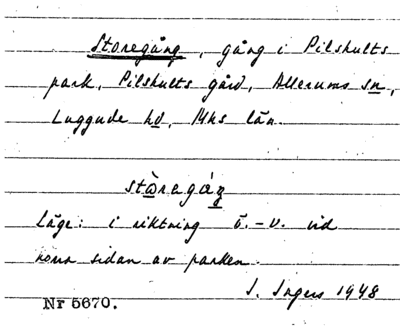 Storegång, gång i Pilshults
park, Pilshults gård, Allerums sn,
Luggude hd, Mhs län.
stòregáŋ
Läge: i riktning ö.-v. vid
norra sidan av parken.
I. Ingers 1948
Nr 5670.